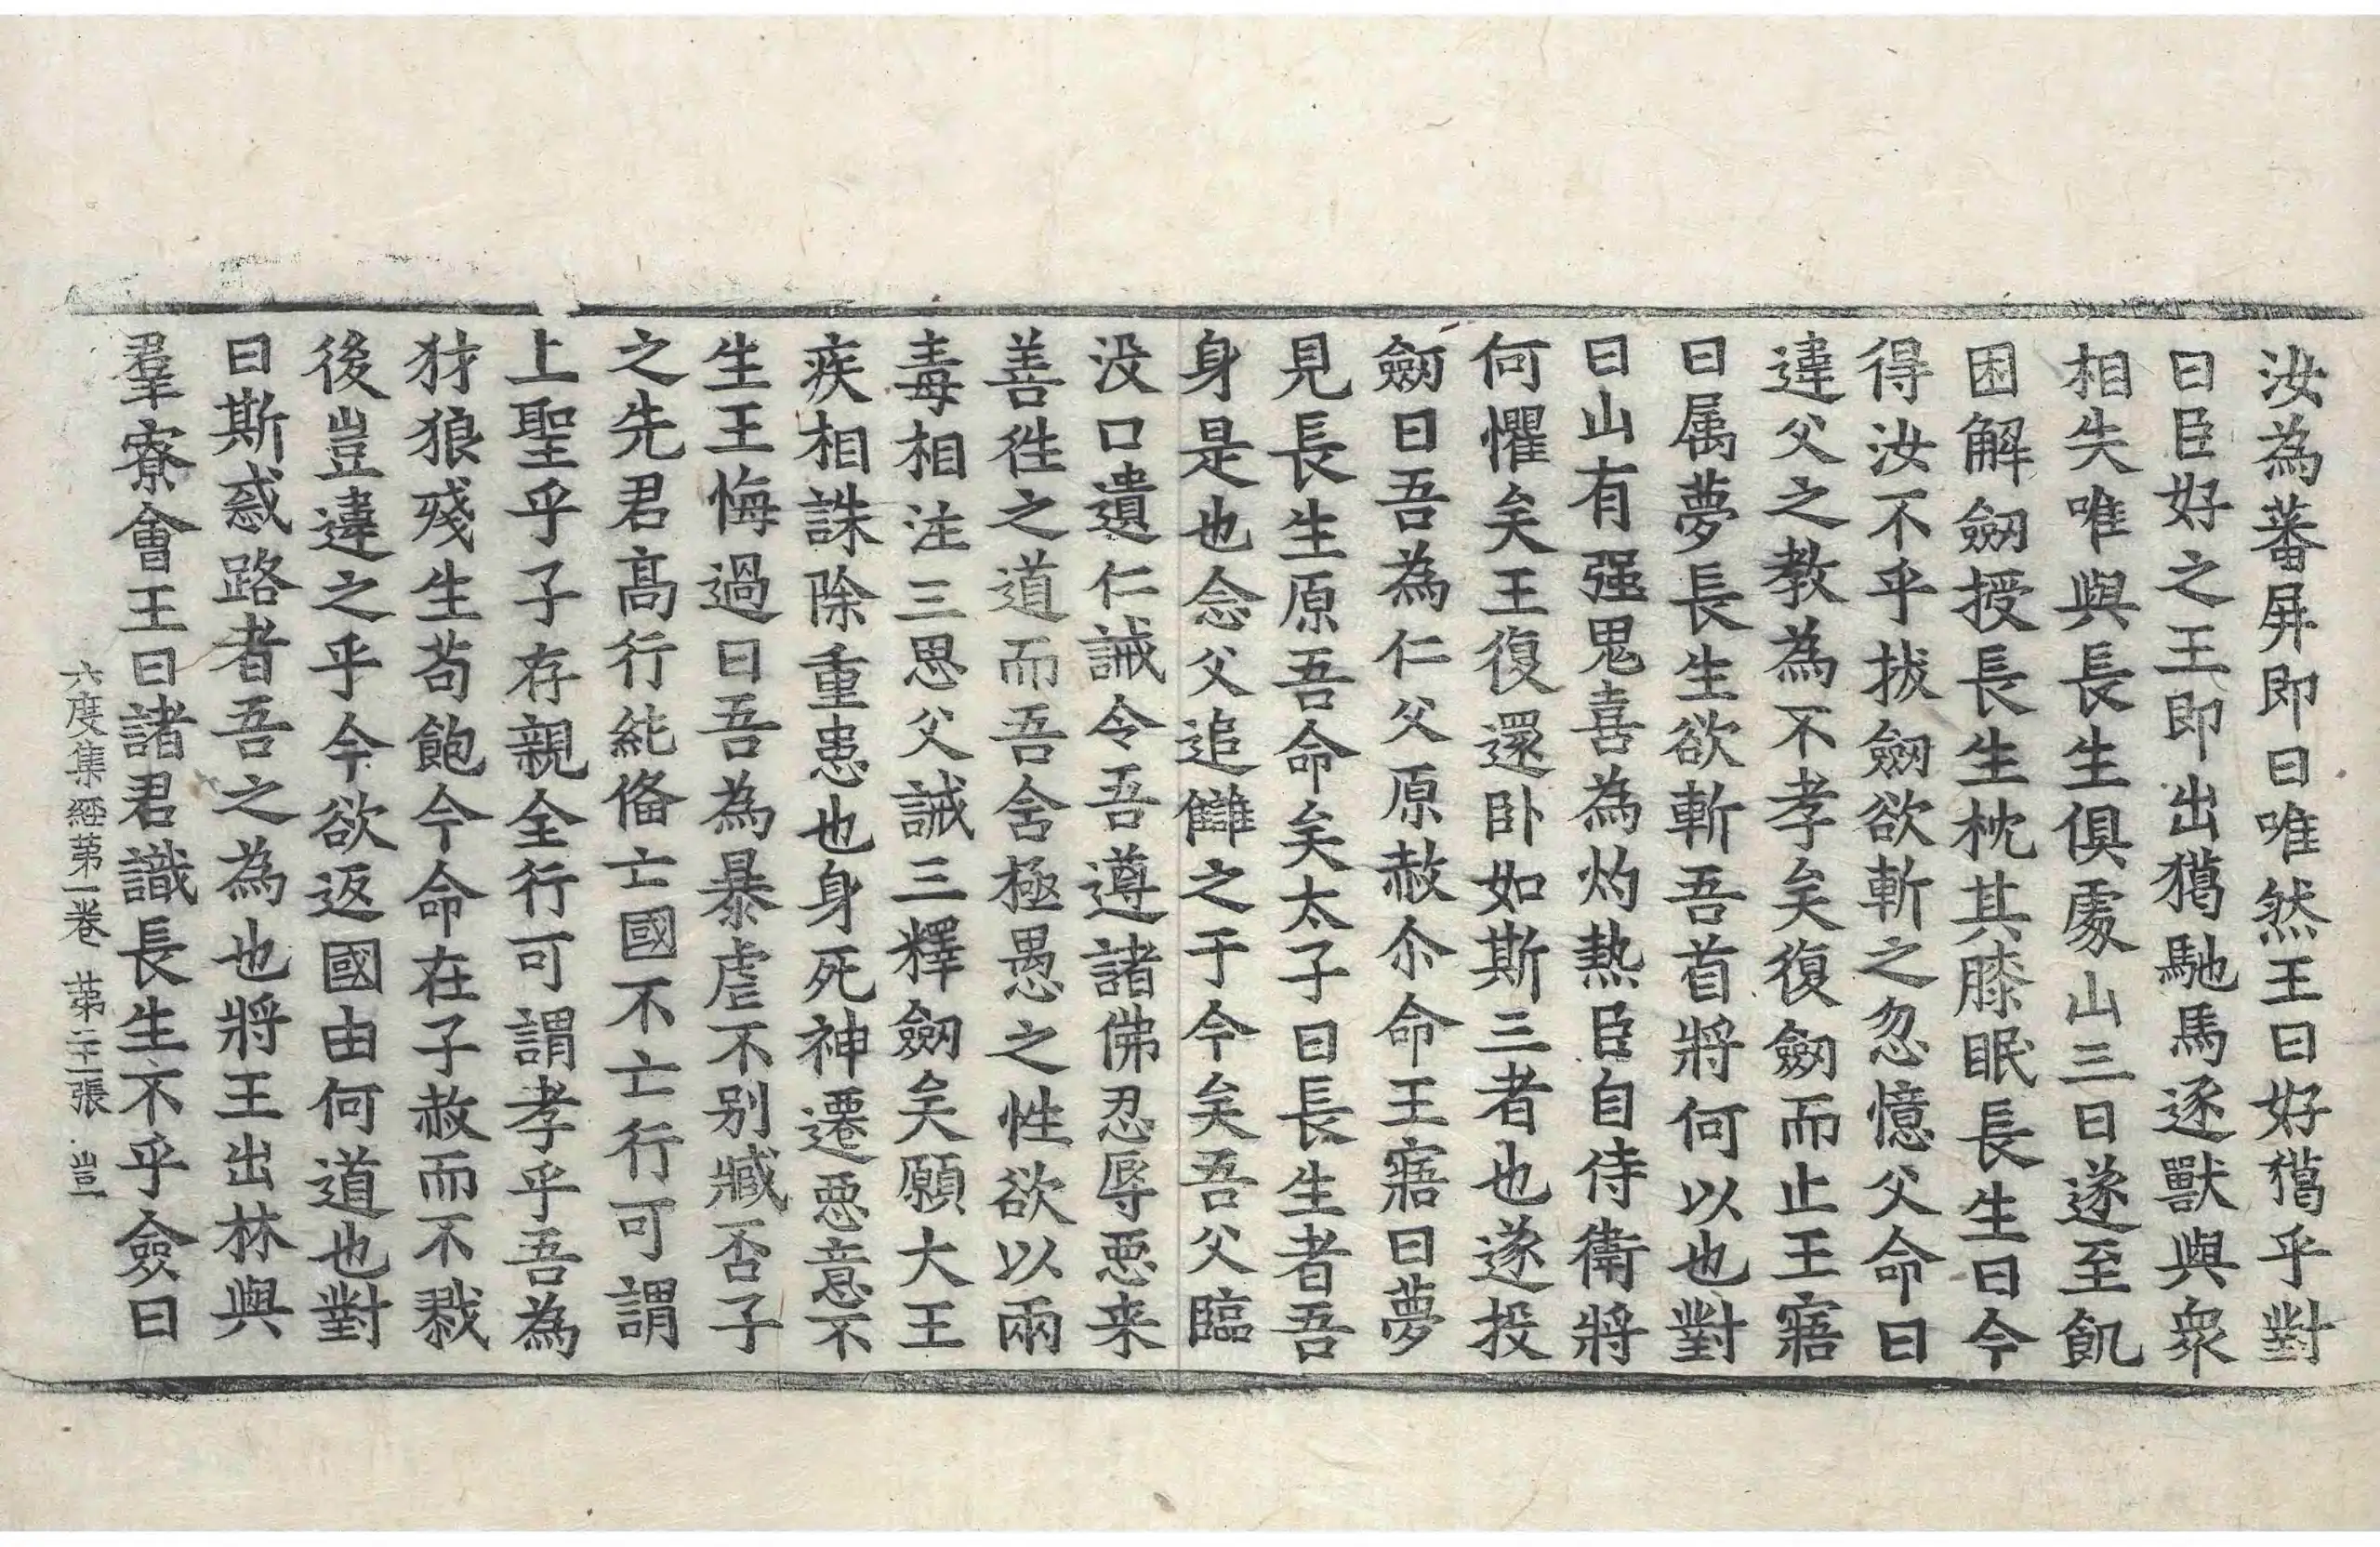 汝為蕃屏即曰唯然王曰好獦乎對
曰臣好之王即出獦馳馬逐獸與衆
相失唯與長生俱處山三日遂至飢
困解劒授長生枕其膝眠長生曰今
得汝不乎拔劒欲斬之忽憶父命曰
違父之教為不孝矣復劒而止王寤
曰属夢長生欲斬吾首將何以也對
曰山有强鬼喜為灼熱臣自侍衛將
何懼矣王復還卧如斯三者也遂投
劒曰吾為仁父原赦尒命王寤曰夢
見長生原吾命矣太子曰長生者吾
身是也念父追讎之于今矣吾父臨
没口遺仁誡令吾遵諸佛忍辱惡来
善徃之道而吾含極愚之性欲以兩
毒相注三思父誡三釋劒矣願大王
疾相誅除重患也身死神遷惡意不
生王悔過曰吾為暴虐不别臧否子
之先君髙行純俻亡國不亡行可謂
上聖乎子存親全行可謂孝乎吾為
犲狼殘生苟飽今命在子赦而不戮
後豈違之乎今欲返國由何道也對
曰斯惑路者吾之為也將王出林與
羣寮會王曰諸君識長生不乎僉曰
六度集經苐一卷 苐二十二張 豈